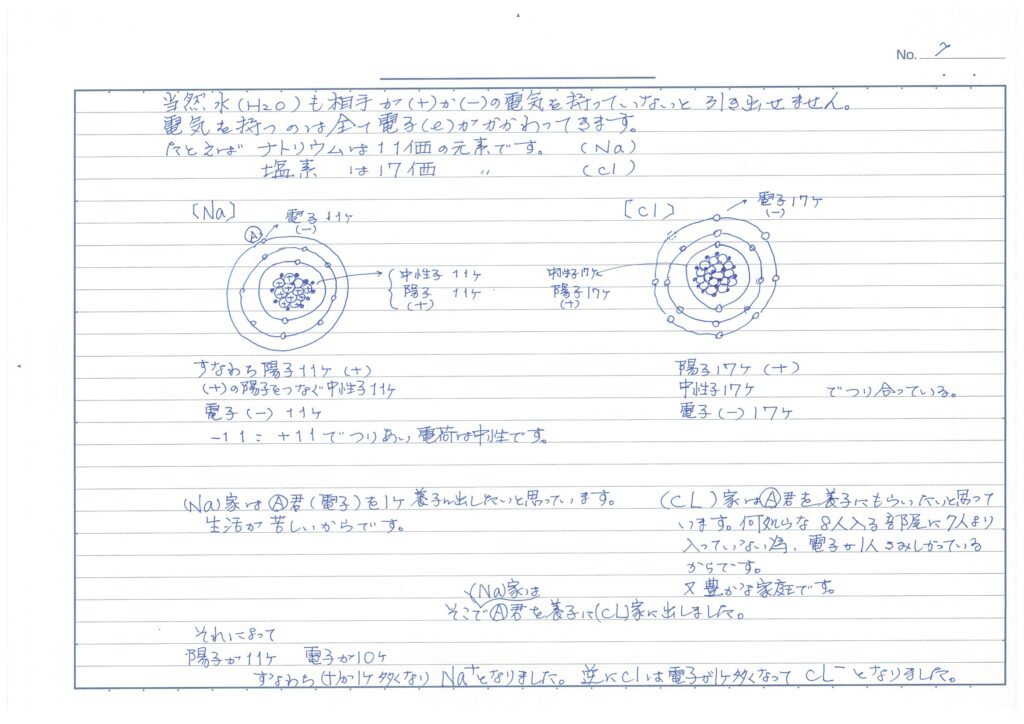 No. 7
当然水(H2O)も相手が(+)か(-)の電気を持っていないと引き出せません。
電気を持つのは全て電子(e)がかかわってきます。
たとえば ナトリウムは11価の元素です。 (Na)
塩素 は17価 〃 (Cl)
[Na] 電子11ヶ
(-)
Ⓐ
中性子 11ヶ
陽子 11ヶ
(+)
[Cl] 電子17ヶ
(-)
中性子17ヶ
陽子17ヶ
(+)
すなわち陽子11ヶ(+)
(+)の陽子をつなぐ中性子11ヶ
電子(-)11ヶ
-11 = +11でつりあい電荷は中性です。
陽子17ヶ(+)
中性子17ヶ でつり合っている。
電子(-)17ヶ
(Na)家はⒶ君(電子)を1ヶ養子に出したいと思っています。
生活が苦しいからです。
(CL)家はⒶ君を養子にもらいたいと思って
います。何処らな8人入る部屋に7人より
入っていない為、電子が1人さみしがっている
からです。
又豊かな家庭です。
(Na)家は
そこでⒶ君を養子に(CL)家に出しました。
それによって
陽子が11ヶ 電子が10ヶ
すなわち(+)が1ヶ多くなりNa+となりました。逆にClは電子が1ヶ多くなってCL-となりました。